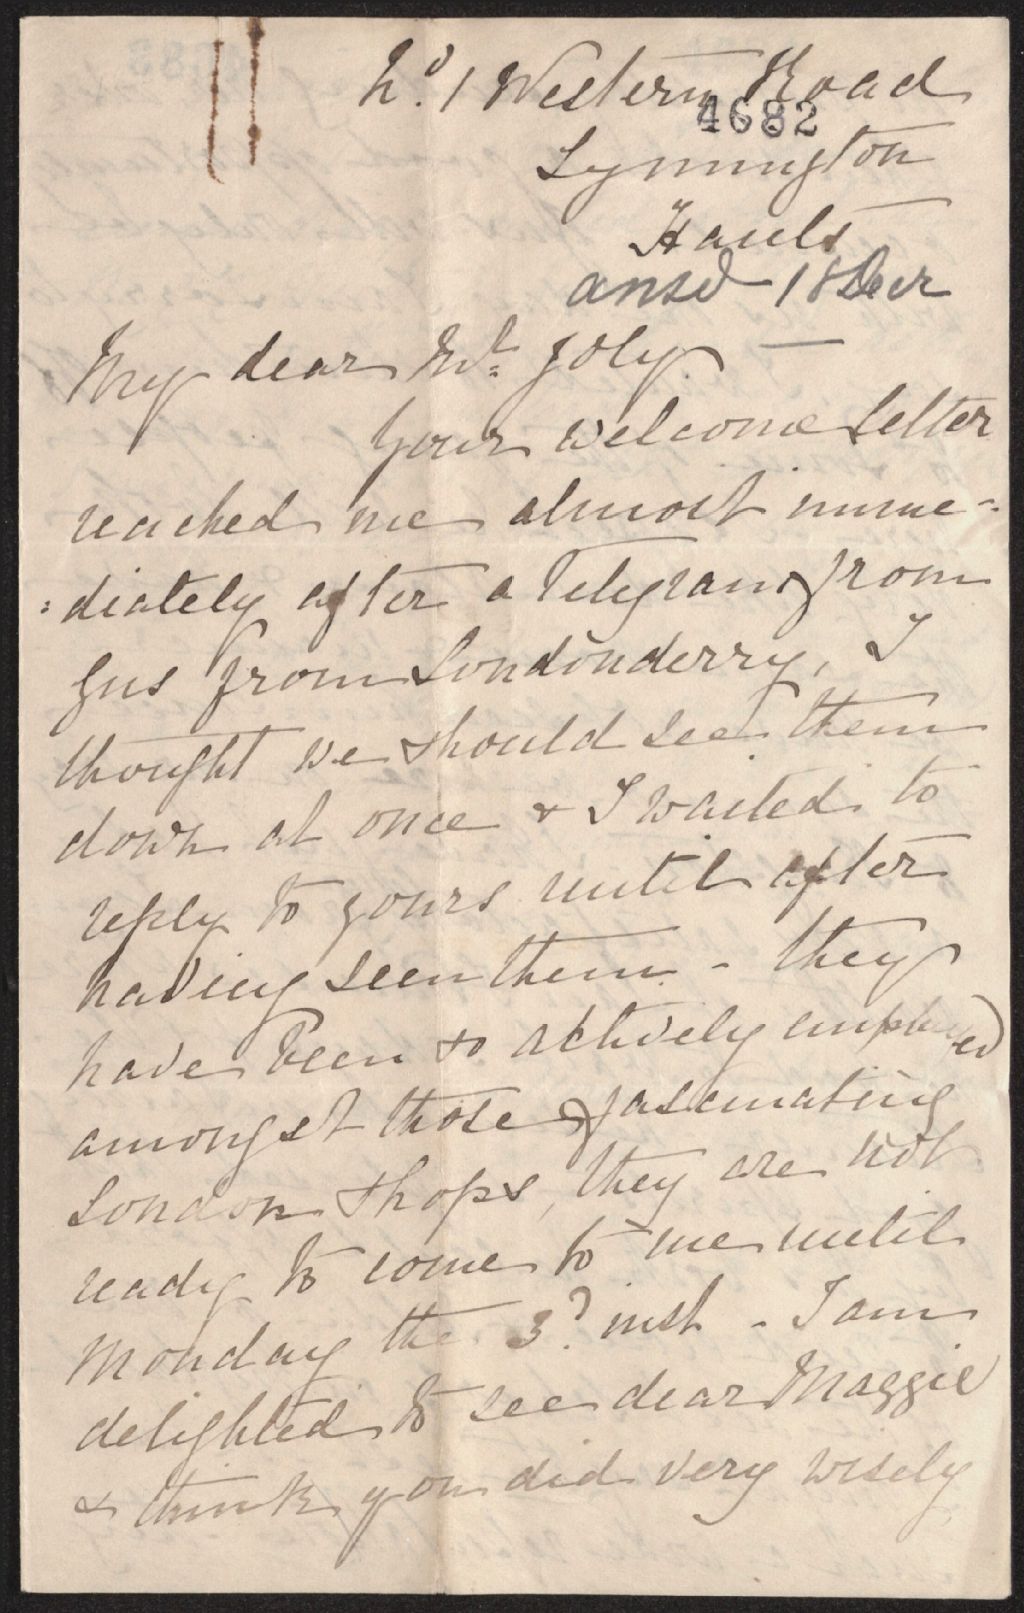 No. 1 Western Road
4682
Lymington
Hants
ansd 18 Decr
My dear Mr. Joly —
Your welcome letter
reached me almost imme=
=diately after a Telegram from
Gus from Londonderry, I
thought we should see them
down at once & I waited to
reply to yours until after
having seen them - they
have been so actively employed
amongst those fascinating
London shops, they are not
ready to come to me until
Monday the 3d inst - I am
delighted to see dear Maggie
& think you did very wisely